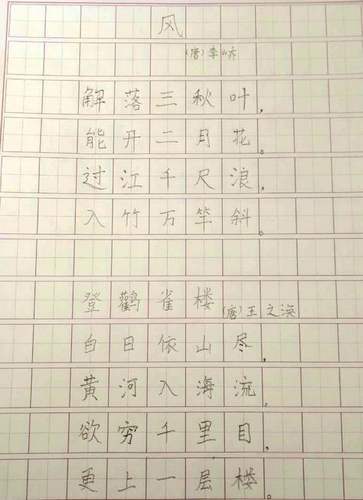 风
(唐)李峤
解落三秋叶,
能开二月花。
过江千尺浪,
入竹万竿斜。
登鹳雀楼
(唐)王之涣
白日依山尽,
黄河入海流。
欲穷千里目,
更上一层楼。